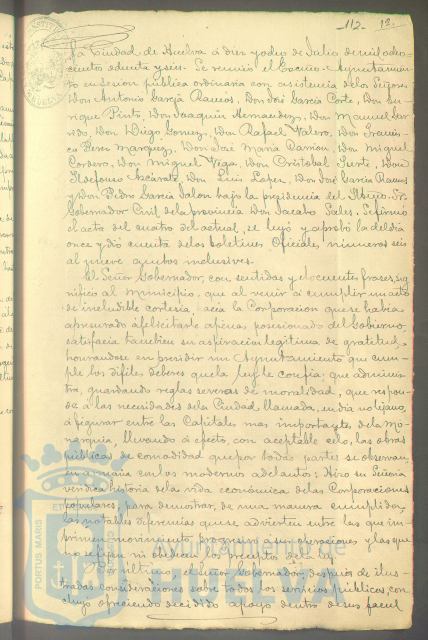 112- 12.
La Ciudad de Huelva á diez y ocho de Julio de mil ocho
cientos ochenta y seis. Se reunió el Excmo. Ayuntamien
to en sesion pública ordinaria con asistencia de los Señores
Don Antonio Garcia Ramos, Don José Garcia Corte, Don En-
rique Pinto, Don Joaquin Hernandez, Don Manuel Gar
rido, Don Diego Gomez, Don Rafael Valero, Don Francis
co Perez Marquez, Don José Maria Carrion, Don Miguel
Cordero, Don Miguel Vega, Don Cristobal Don
Ildefonso Don Luis Lopez, Don José Garcia Ramos
y Don Pedro Garcia Jalon bajo la presidencia del Sr.
Gobernador Civil de la provincia Don Jacobo Sales. Se firmó
el acta del cuatro del actual, se leyó y aprobó la del dia
once y dió cuenta de los boletines Oficiales, números seis
al nueve ambos inclusives.
El Señor Gobernador, con sentidas y elocuentes frases, sig
nificó al Municipio, que al venir á cumplir un acto
de ineludible cortesia, hacia la Corporacion que se habia
apresurado á felicitarle apenas posesionado del Gobierno,
satisfacia tambien su aspiracion legitima de gratitud,
honrandose en presidir un Ayuntamiento que cum-
ple los dificiles deberes que la ley le confia; que adminis-
tra, guardando reglas severas de moralidad, que respon-
de á las necesidades de la Ciudad llamada, en dia no lejano,
á figurar entre las Capitales mas importantes de la Mo-
narquia, llevando á efecto, con aceptable celo, las obras
públicas de comodidad que por todas partes se observan
en armonia con los modernos adelantos: Hizo su Señoria
verídica historia de la vida económica de las Corporaciones
populares para demostrar, de una manera cumplida,
las notables diferencias que se advierten entre las que im-
primen movimiento, progreso á sus operaciones y las que
no siguen ni obedecen los preceptos de
Por último, el Señor Gobernador, despues de ilus-
tradas consideraciones sobre todos los servicios públicos, con
cluyó ofreciendo decidido apoyo dentro de sus facul
PORTUS MARIS
Ayuntamiento de
HUELVA